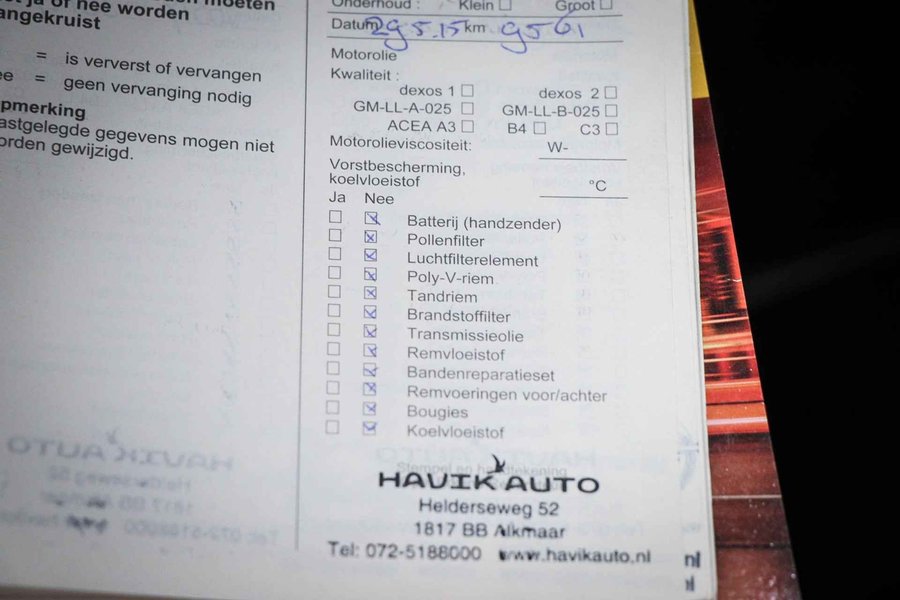 moeten
t ja of nee worden
angekruist
= is ververst of vervangen
ee = geen vervanging nodig
pmerking
astgelegde gegevens mogen niet
orden gewijzigd.
Onderhoud : Klein Groot
Datum 29.5.15 km 9561
Motorolie
Kwaliteit :
dexos 1 dexos 2
GM-LL-A-025 GM-LL-B-025
ACEA A3 B4 C3
Motorolieviscositeit: W-
Vorstbescherming,
koelvloeistof °C
Ja Nee
Batterij (handzender)
Pollenfilter
Luchtfilterelement
Poly-V-riem
Tandriem
Brandstoffilter
Transmissieolie
Remvloeistof
Bandenreparatieset
Remvoeringen voor/achter
Bougies
Koelvloeistof
Stempel en handtekening
HAVIK AUTO
Helderseweg 52
1817 BB Alkmaar
Tel: 072-5188000 www.havikauto.nl